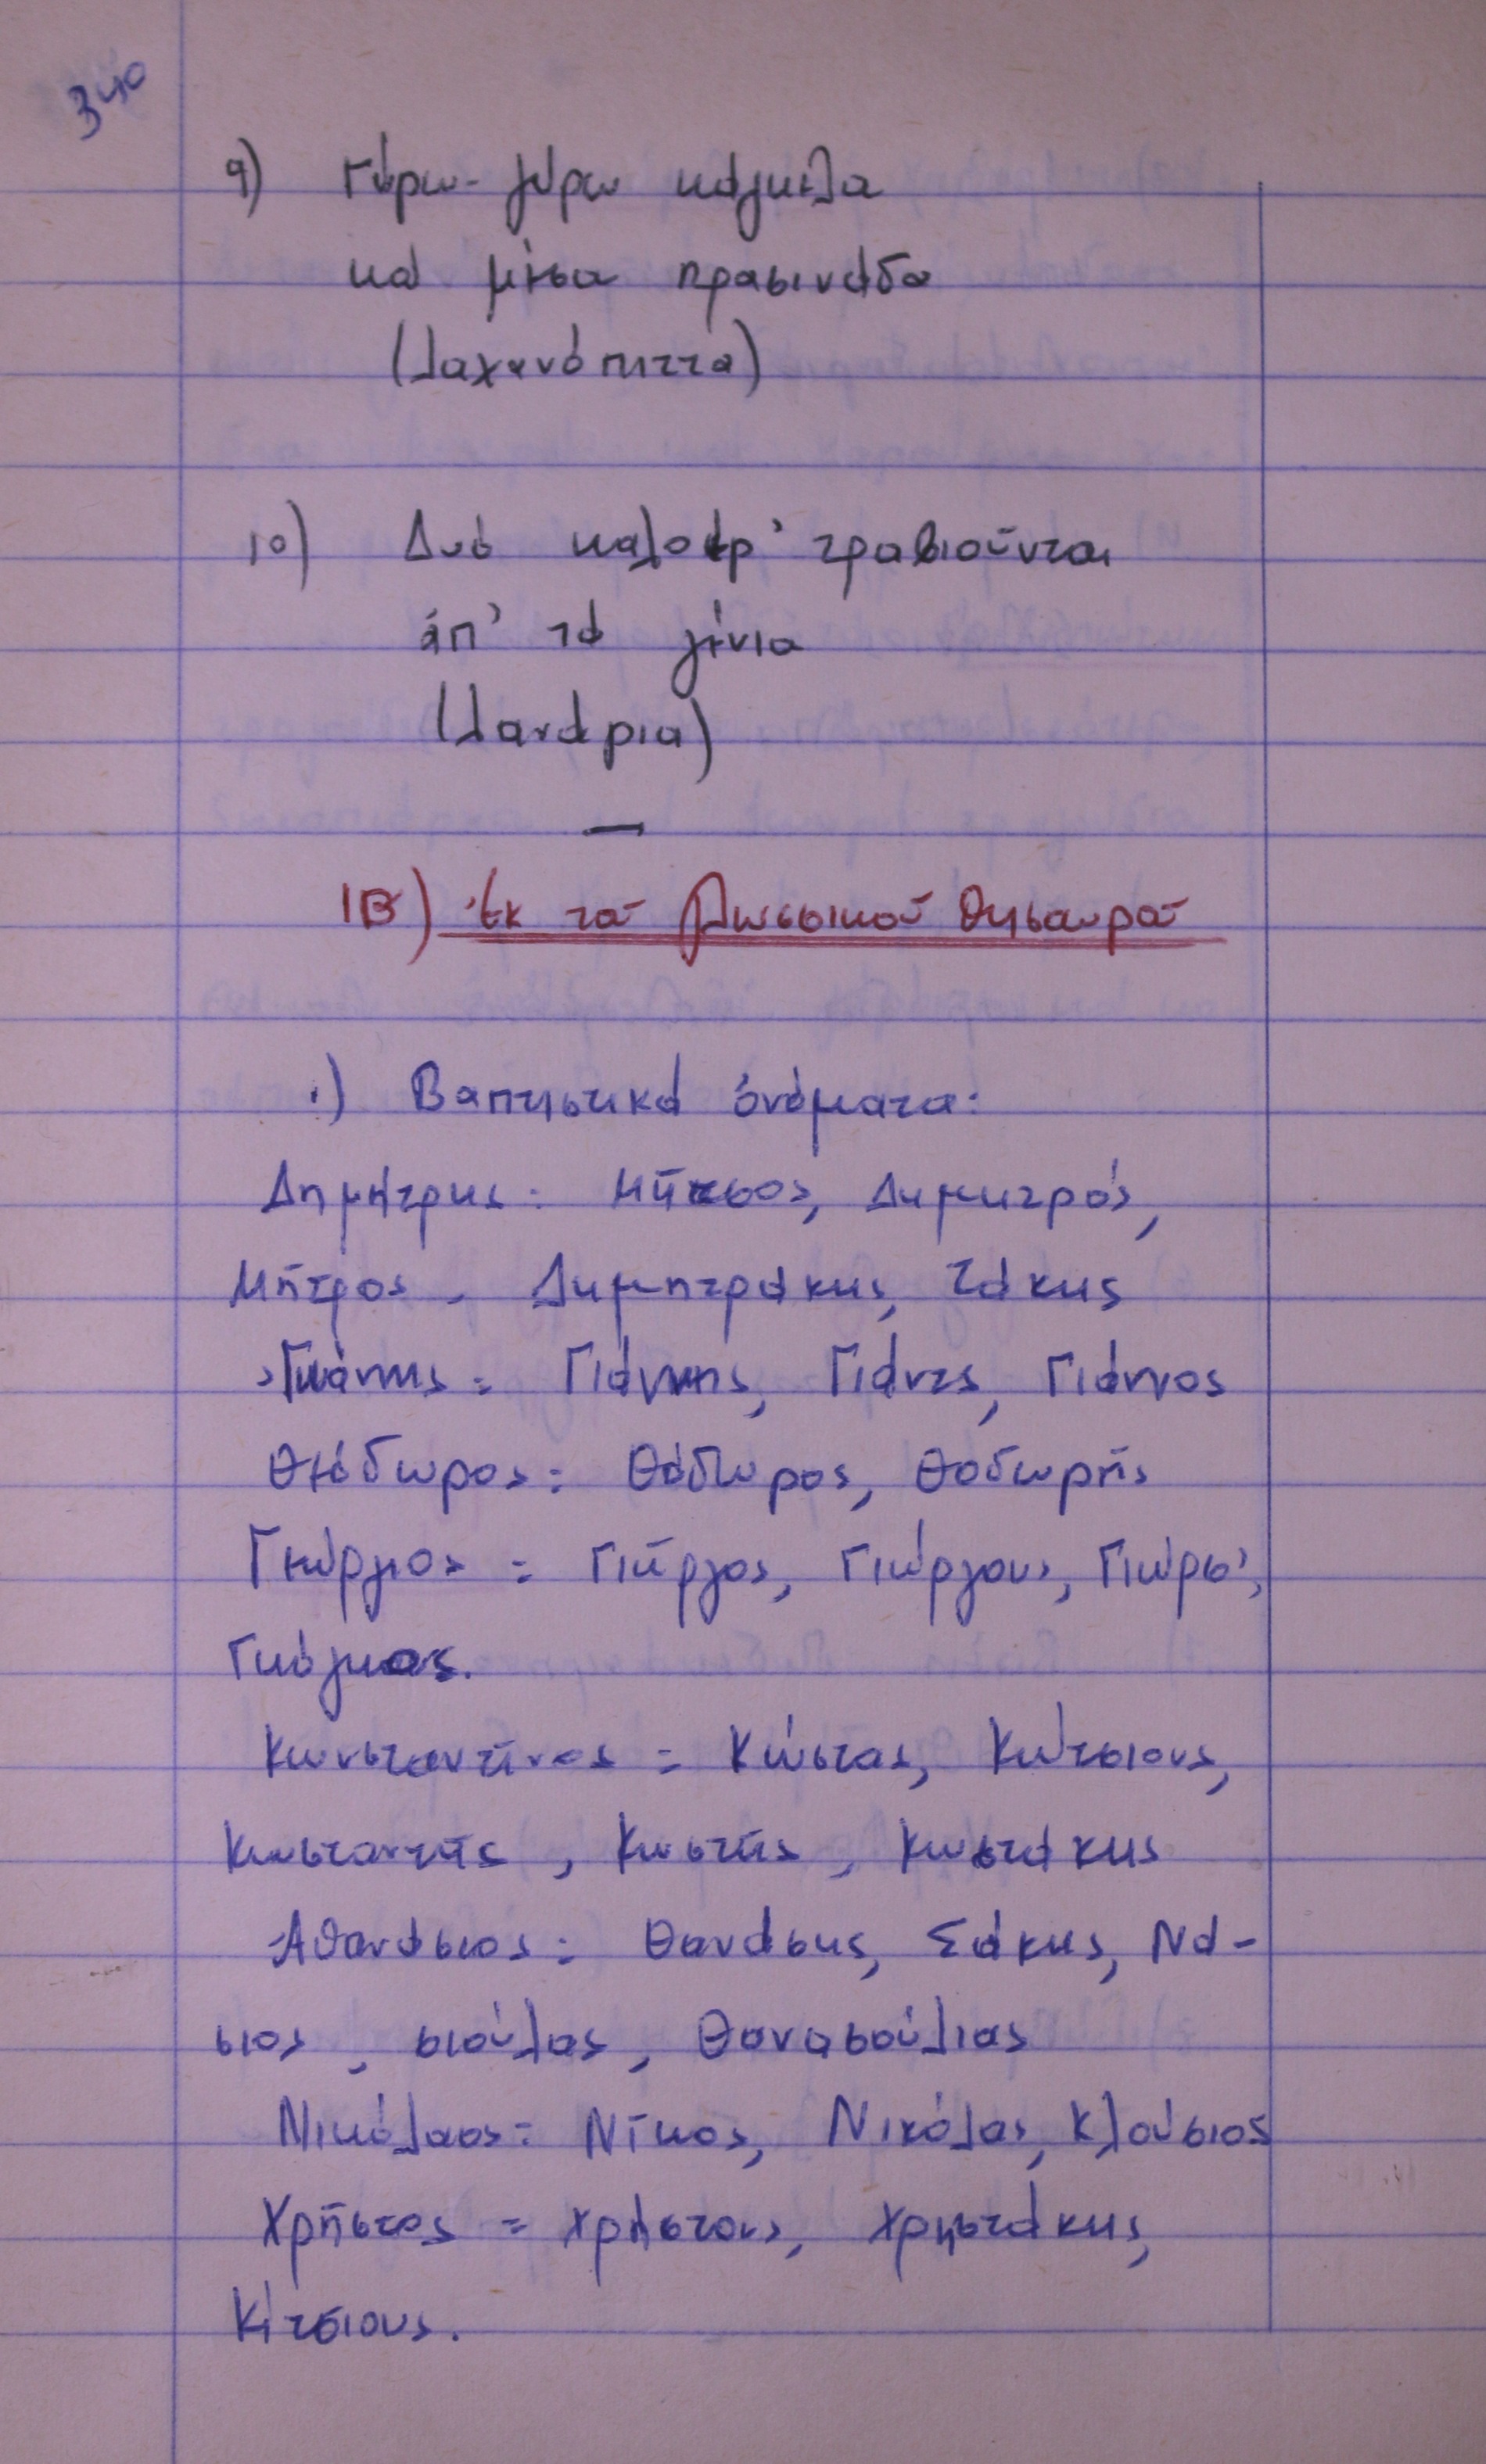 340
9) Γύρω-γύρω κάγκελα
καὶ μέσα πρασινάδα
(Λαχανόπιττα)
10) Δυὸ καλοέρ' τραβιοῦνται
ἀπ' τὰ γένια
(Λανάρια)
—
ΙΒ) Ἐκ τοῦ γλωσσικοῦ θησαυροῦ
1) Βαπτιστικὰ ὀνόματα:
Δημήτρης: Μῆτσος, Δημητρός,
Μῆτρος, Δημητράκης, Τάκης
Ἰωάννης = Γιάννης, Γιάντς, Γιάννος
Θεόδωρος: Θόδωρος, Θοδωρῆς
Γεώργιος = Γιῶργος, Γιώργους, Γιώρσ',
Γκόγκας.
Κωνσταντῖνος = Κώστας, Κώτσιους,
Κωσταντῆς, Κωστῆς, Κωστάκης
Ἀθανάσιος: Θανάσης, Σάκης, Νά-
σιος, σιούλας, Θανασούλιας
Νικόλαος: Νῖκος, Νικόλας, Κλούσιος
Χρῆστος = Χρήστους, Χρηστάκης,
Κίτσιους.